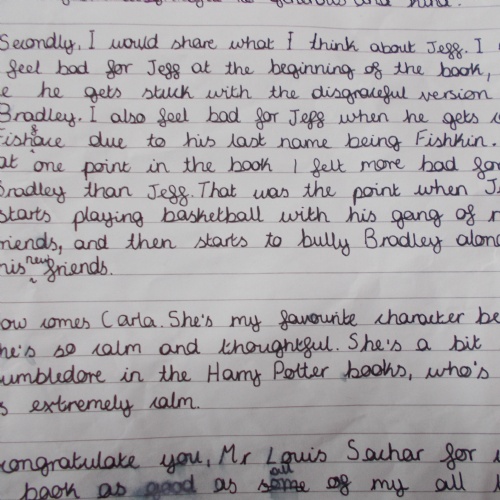 Secondly, I would share what I think about Jeff. I
feel bad for Jeff at the beginning of the book,
he gets stuck with the disgraceful version
Bradley. I also feel bad for Jeff when he gets
Fishface due to his last name being Fishkin.
at one point in the book I felt more bad for
Bradley than Jeff. That was the point when
starts playing basketball with his gang of
friends, and then starts to bully Bradley along
his new friends.
Now comes Carla. She's my favourite character
She's so calm and thoughtful. She's a bit
Dumbledore in the Harry Potter books, who's
extremely calm.
congratulate you, Mr Louis Sachar for
book as good as some of my all
all